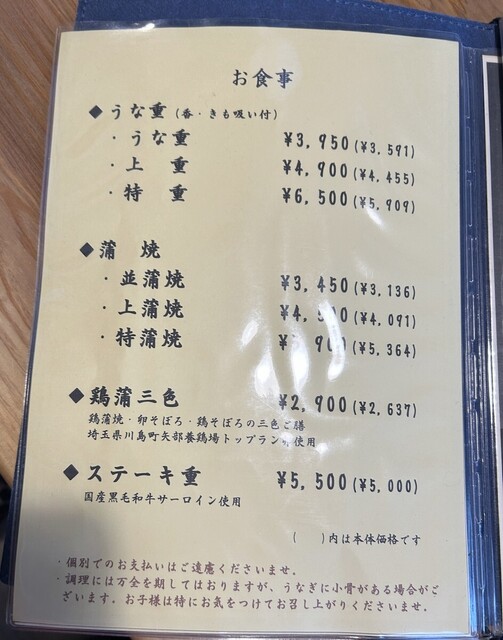 お食事
◆うな重(香・きも吸い付)
・うな重 ¥3,950(¥3,591)
・上 重 ¥4,900(¥4,455)
・特 重 ¥6,500(¥5,909)
◆蒲 焼
・並蒲焼 ¥3,450(¥3,136)
・上蒲焼 (¥4,091)
・特蒲焼 (¥5,364)
◆鶏蒲三色 ¥2,900(¥2,637)
鶏蒲焼・卵そぼろ・鶏そぼろの三色ご膳
埼玉県川島町矢部養鶏場トップラン 使用
◆ステーキ重 ¥5,500(¥5,000)
国産黒毛和牛サーロイン使用
( )内は本体価格です
・個別でのお支払いはご遠慮くださいませ。
・調理には万全を期してはおりますが、うなぎに小骨がある場合がご
ざいます。お子様は特にお気をつけてお召し上がりくださいませ。